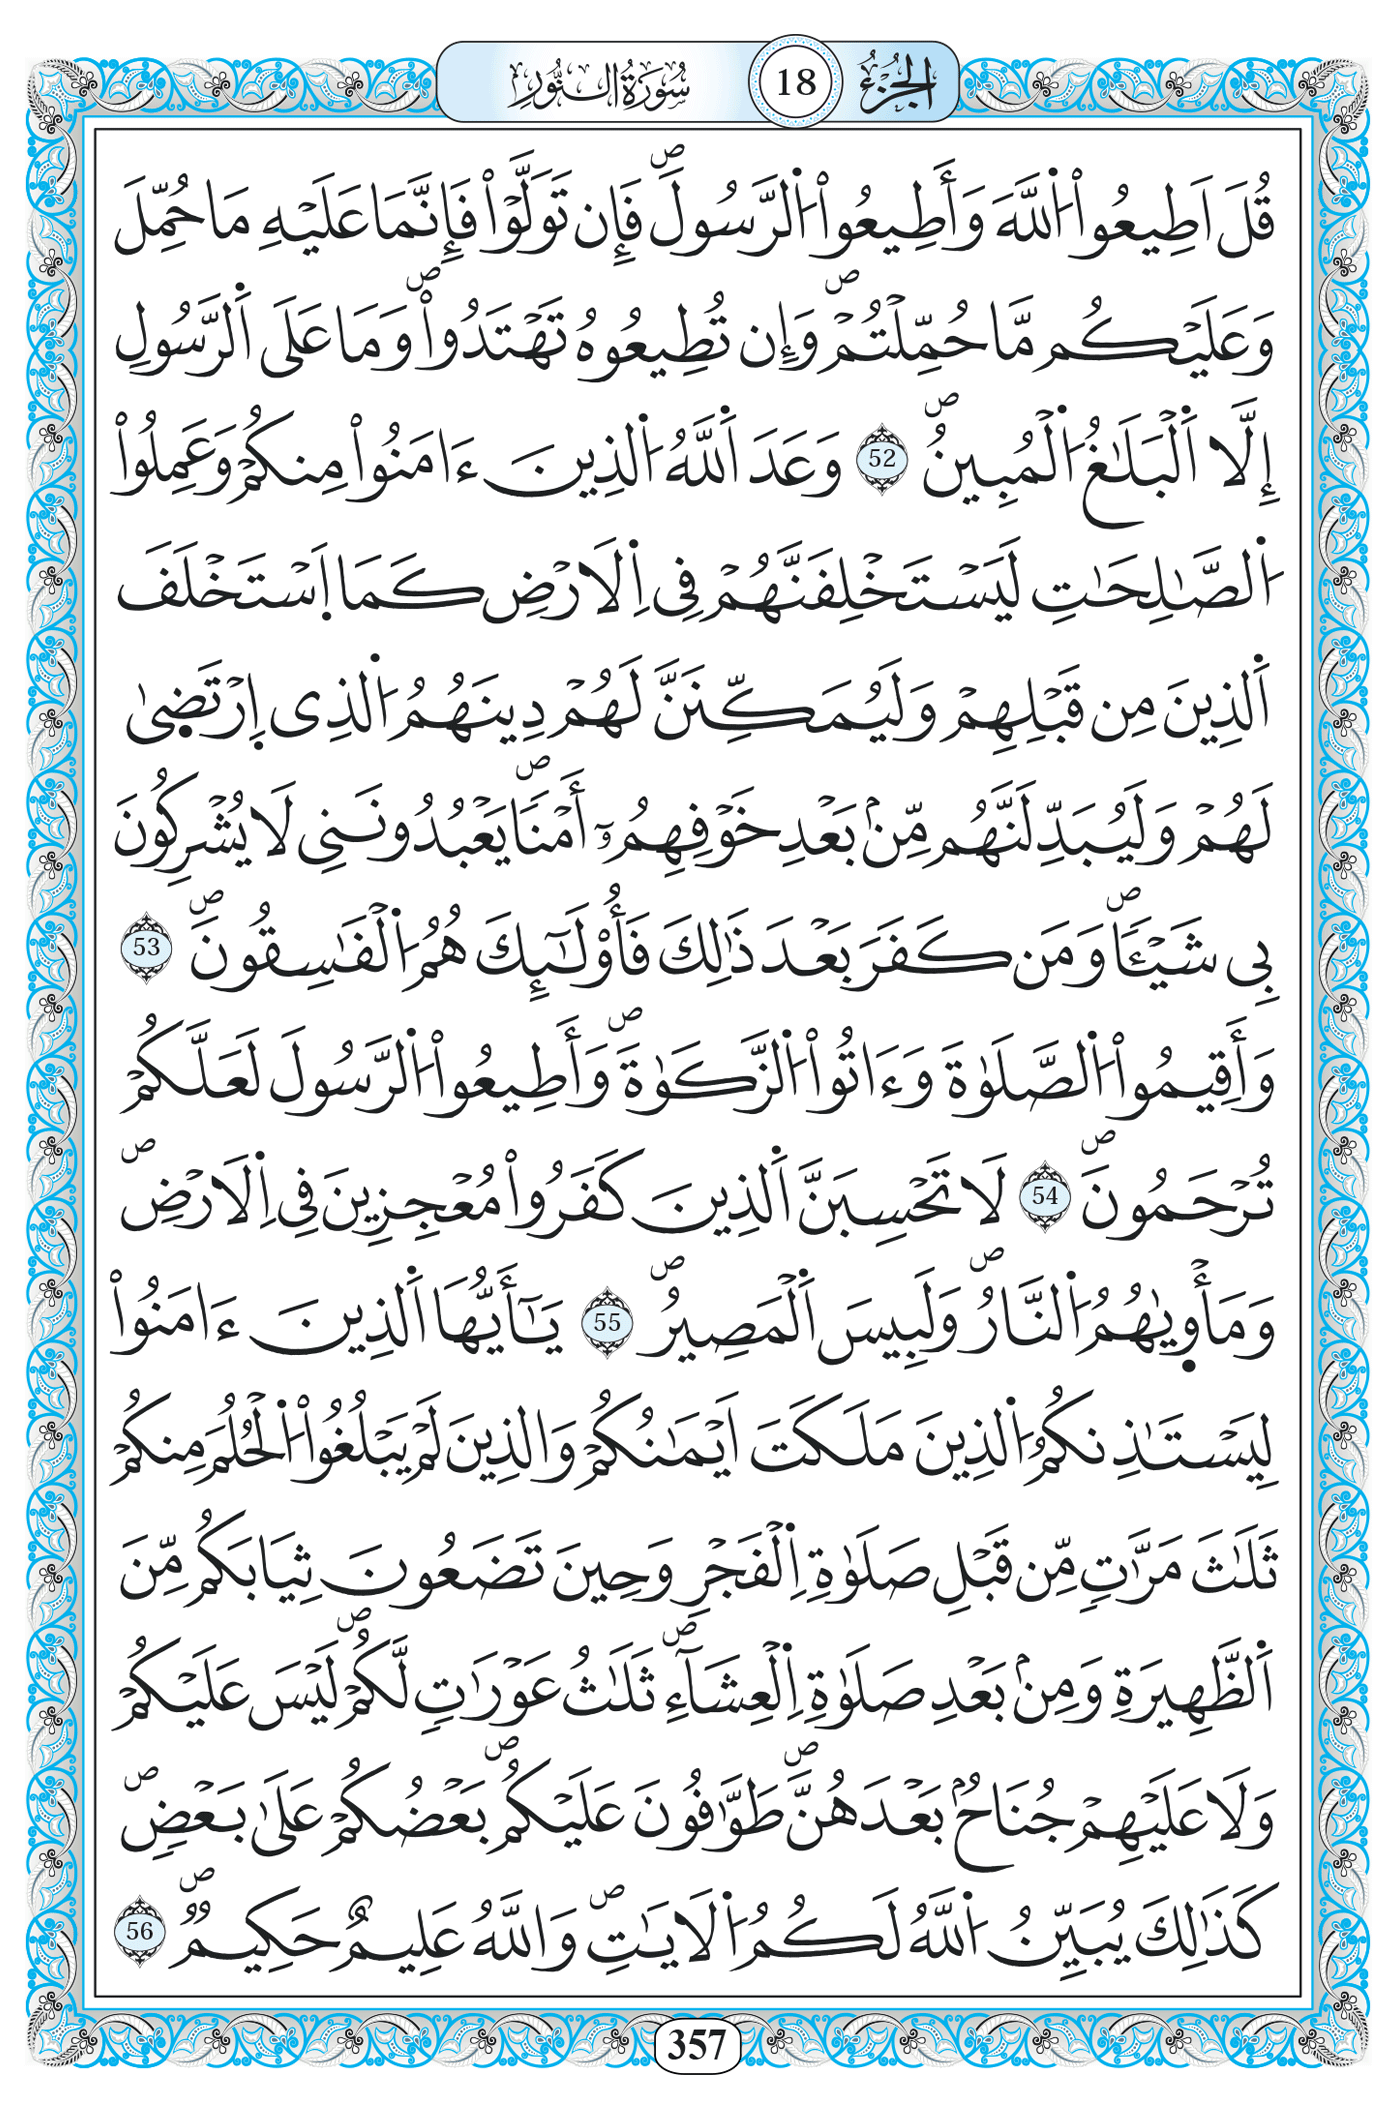 الجُزْءُ 18 سُورَةُ النُّورِ
قُلَ اَطِيعُواْ اُ۬للَّهَ وَأَطِيعُواْ اُ۬لرَّسُولَۖ فَإِن تَوَلَّوْاْ فَإِنَّمَا عَلَيْهِ مَا حُمِّلَ
وَعَلَيْكُم مَّا حُمِّلْتُمْۖ وَإِن تُطِيعُوهُ تَهْتَدُواْۖ وَمَا عَلَى اَ۬لرَّسُولِ
إِلَّا اَ۬لْبَلَٰغُ اُ۬لْمُبِينُۖ 52 وَعَدَ اَ۬للَّهُ اُ۬لذِينَ ءَامَنُواْ مِنكُمْ وَعَمِلُواْ
اُ۬لصَّٰلِحَٰتِ لَيَسْتَخْلِفَنَّهُمْ فِي اِ۬لَارْضِ كَمَا اَ۪سْتَخْلَفَ
اَ۬لذِينَ مِن قَبْلِهِمْ وَلَيُمَكِّنَنَّ لَهُمْ دِينَهُمُ اُ۬لذِي اِ۪رْتَض۪ىٰ
لَهُمْ وَلَيُبَدِّلَنَّهُم مِّنۢ بَعْدِ خَوْفِهِمُۥٓ أَمْناٗۖ يَعْبُدُونَنِي لَا يُشْرِكُونَ
بِي شَيْـٔاٗۖ وَمَن كَفَرَ بَعْدَ ذَٰلِكَ فَأُوْلَٰٓئِكَ هُمُ اُ۬لْفَٰسِقُونَۖ 53
وَأَقِيمُواْ اُ۬لصَّلَوٰةَ وَءَاتُواْ اُ۬لزَّكَوٰةَۖ وَأَطِيعُواْ اُ۬لرَّسُولَ لَعَلَّكُمْ
تُرْحَمُونَۖ 54 لَا تَحْسِبَنَّ اَ۬لذِينَ كَفَرُواْ مُعْجِزِينَ فِي اِ۬لَارْضِۖ
وَمَأْو۪يٰهُمُ اُ۬لنَّارُۖ وَلَبِيسَ اَ۬لْمَصِيرُۖ 55 يَٰٓأَيُّهَا اَ۬لذِينَ ءَامَنُواْ
لِيَسْتَٰذِنكُمُ اُ۬لذِينَ مَلَكَتَ اَيْمَٰنُكُمْ وَالذِينَ لَمْ يَبْلُغُواْ اُ۬لْحُلُمَ مِنكُمْ
ثَلَٰثَ مَرَّٰتٖ مِّن قَبْلِ صَلَوٰةِ اِ۬لْفَجْرِ وَحِينَ تَضَعُونَ ثِيَابَكُم مِّنَ
اَ۬لظَّهِيرَةِ وَمِنۢ بَعْدِ صَلَوٰةِ اِ۬لْعِشَآءِۖ ثَلَٰثُ عَوْرَٰتٖ لَّكُمْۖ لَيْسَ عَلَيْكُمْ
وَلَا عَلَيْهِمْ جُنَاحُۢ بَعْدَهُنَّۖ طَوَّٰفُونَ عَلَيْكُمۖ بَعْضُكُمْ عَلَىٰ بَعْضٖۖ
كَذَٰلِكَ يُبَيِّنُ اُ۬للَّهُ لَكُمُ اُ۬لَايَٰتِۖ وَاللَّهُ عَلِيمٌ حَكِيمٞۖ 56
357